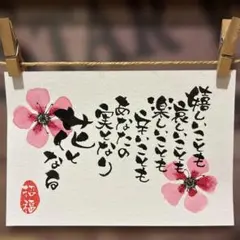 嬉しいことも
哀しいことも
楽しいことも
辛いことも
あなたの
実となり
花と
なる
招福